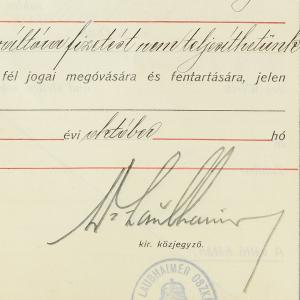 váltóra fizetést nem teljesíthetünk
fél jogai megóvására és fentartására, jelen
évi október hó
Dr Laushaimer
kir. közjegyző.
LAUSHAIMER OSZK